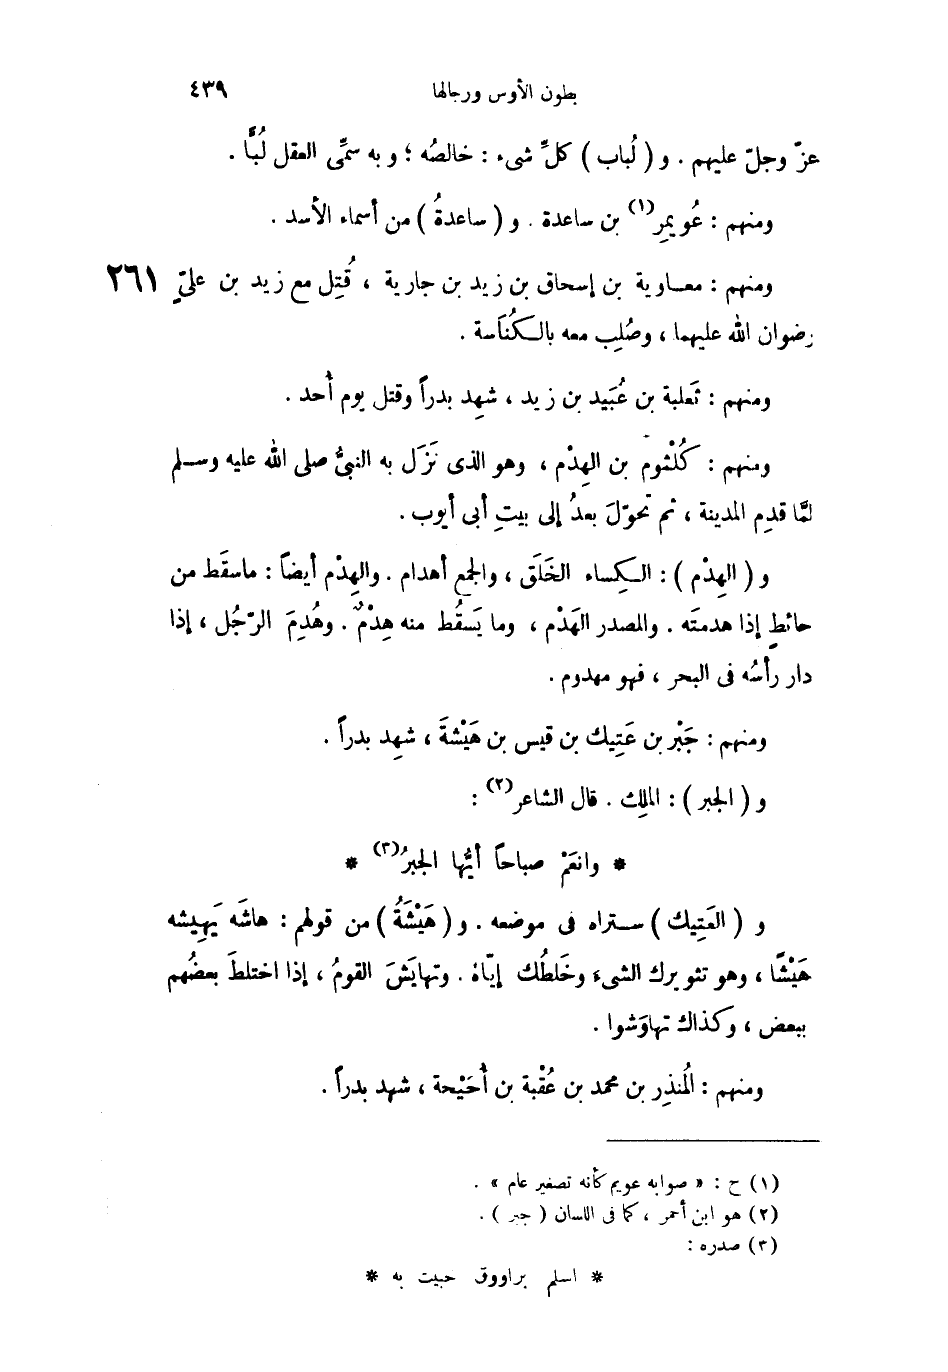 بطون الأوس ورجالها ٤٣٩
عزّ وجلّ عليهم . و ( لُباب ) كلِّ شىء : خالصُه ؛ و به سمِّى العقل لُبًّا .
ومنهم : عُويمِر(١) بن ساعدة . و ( ساعدةُ ) من أسماء الأسد .
ومنهم : معاوية بن إسحاق بن زيد بن جارية ، قُتِل مع زيد بن علىّ ٢٦١
رضوان الله عليهما ، وصُلِب معه بالكُنَاسة .
ومنهم : ثَعلبة بن عُبَيد بن زيد ، شهِد بدراً وقتل يوم أُحد .
ومنهم : كُلْثوم بن الهِدْم ، وهو الذى نَزَل به النبىُّ صلى الله عليه وسلم
لمَّا قدِم المدينة ، ثم تحوّلَ بعدُ إلى بيتِ أبى أيوب .
و ( الهِدْم ) : الكِساء الخَلَق ، والجمع أهدام . والهِدْم أيضاً : ماسقَط من
حائطٍ إذا هدمتَه . والمصدر الهَدْم ، وما يَسقُط منه هِدْمٌ . وهُدِمَ الرّجُل ، إذا
دار رأسُه فى البحر ، فهو مهدوم .
ومنهم : جَبْر بن عَتِيك بن قيس بن هَيْشةَ ، شهِد بدراً .
و ( الجبر ) : الملِك . قال الشاعر(٢) :
* وانعَمْ صباحاً أيُّها الجبرُ(٣) *
و ( العَتِيك ) ستراه فى موضعه . و ( هَيْشَةُ ) من قولهم : هاشَه يَهِيشه
هَيْشًا ، وهو تثويرك الشىءَ وخَلطُك إيّاهُ . وتهايَشَ القومُ ، إذا اختلطَ بعضُهم
ببعض ، وكذاك تهاوَشوا .
ومنهم : المُنذِر بن محمد بن عُقْبة بن أُحَيْحة ، شهد بدراً .
(١) ح : « صوابه عويم كأنه تصغير عام » .
(٢) هو ابن أحمر ، كما فى اللسان ( جبر ) .
(٣) صدره :
* اسلم براووق حبيت به *